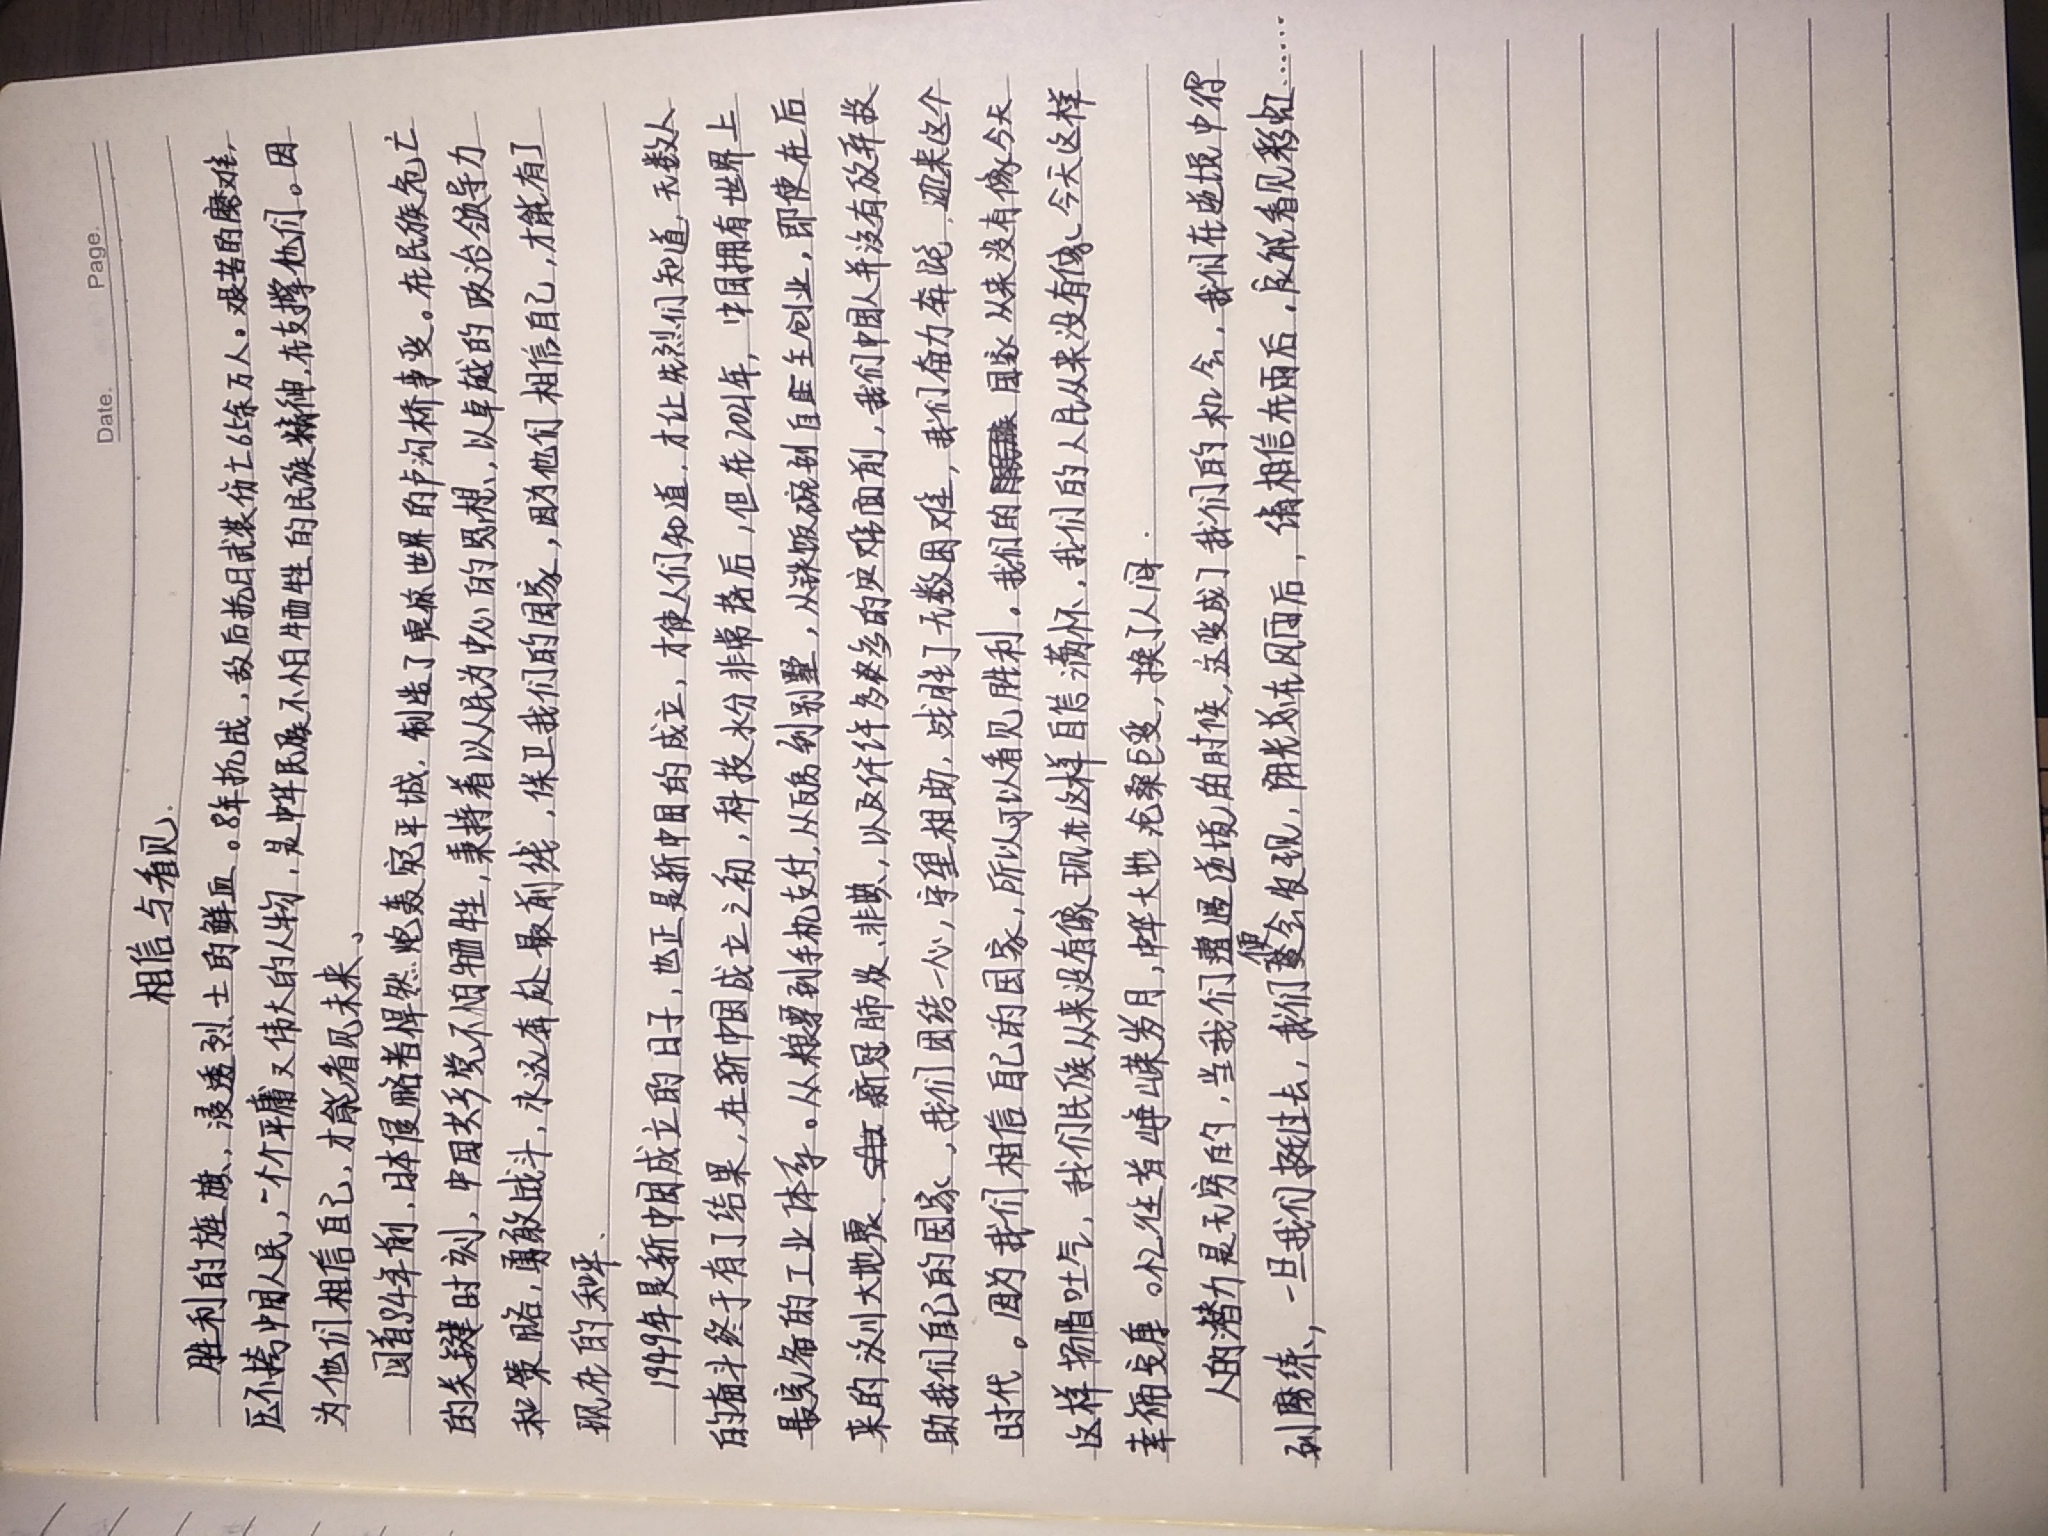 Date. Page.
相信与看见.
胜利的旌旗,浸透烈士的鲜血。8年抗战,敌后抗日武装伤亡61余万人。艰苦的磨难,
压不垮中国人民,一个个平庸又伟大的人物,是中华民族不怕牺牲的民族精神,在支撑他们。因
为他们相信自己,才能看见未来、
回首84年前,日本侵略者悍然炮轰宛平城,制造了震惊世界的卢沟桥事变。在民族危亡
的关键时刻,中国共产党不怕牺牲,秉持着以人民为中心的思想,以卓越的政治领导力
和策略,勇敢战斗,永远奔赴最前线,保卫我们的国家,因为他们相信自己,才能有了
现在的和平、
1949年是新中国成立的日子,也正是新中国的成立,才使人们知道,才让先烈们知道,无数人
的奋斗终于有了结果,在新中国成立之初,科技水分非常落后,但在2021年,中国拥有世界上
最完备的工业体系。从粮票到手机支付,从瓦房到别墅,从铁饭碗到自主创业,即使在后
来的汶川大地震、新冠肺炎、非典、以及仟仟多多的灾难面前,我们中国人并没有放弃救
助我们自己的国家,我们团结一心,守望相助,战胜了无数困难,我们奋力奔跑,迎来这个
时代。因为我们相信自己的国家,所以可以看见胜利。我们的国家从来没有像今天
这样扬眉吐气,我们民族从来没有像现在这样自信满怀,我们的人民从来没有像、今天这样
幸福安康。忆往昔峥嵘岁月,中华大地沧桑巨变,换了人间.
人的潜力是无穷的,当我们遭遇逆境的时候,这变成了我们的机会,我们在逆境中得
到磨练,一旦我们挺过去,我们便会发现,阳光总在风雨后,请相信在雨后,即能看见彩虹......